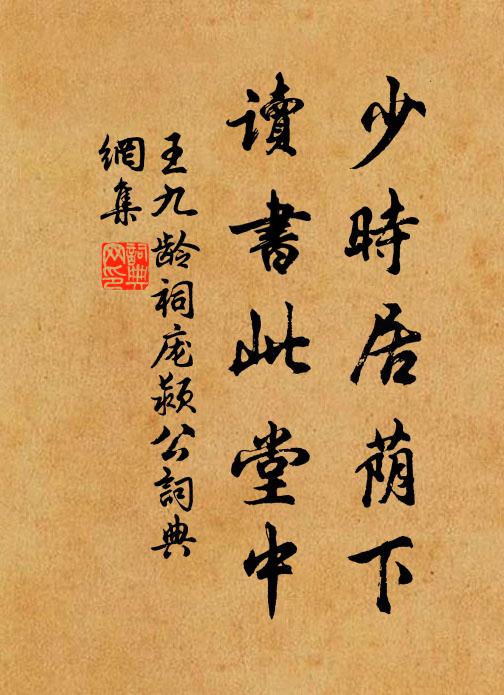 少時居荫下
讀書此堂中
王九龄祠庞颍公詞典
網集
詞典
网印